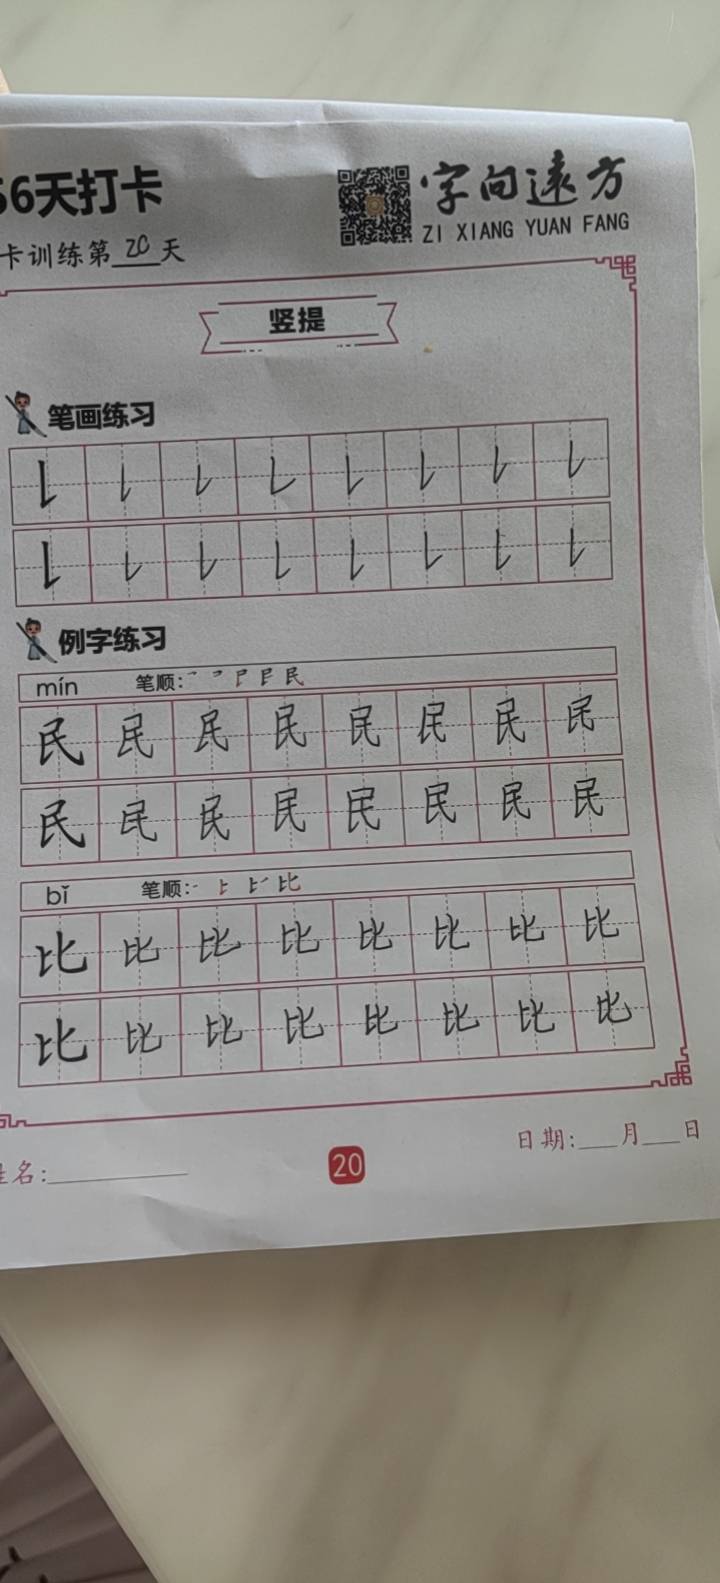 6天打卡
字向远方
ZI XIANG YUAN FANG
卡训练第20天
竖提
笔画练习
例字练习
mín 笔顺:
民 民 民 民 民 民 民 民
民 民 民 民 民 民 民 民
bǐ 笔顺:
比 比 比 比 比 比 比 比
比 比 比 比 比 比 比 比
日期:___月___日
名:
20